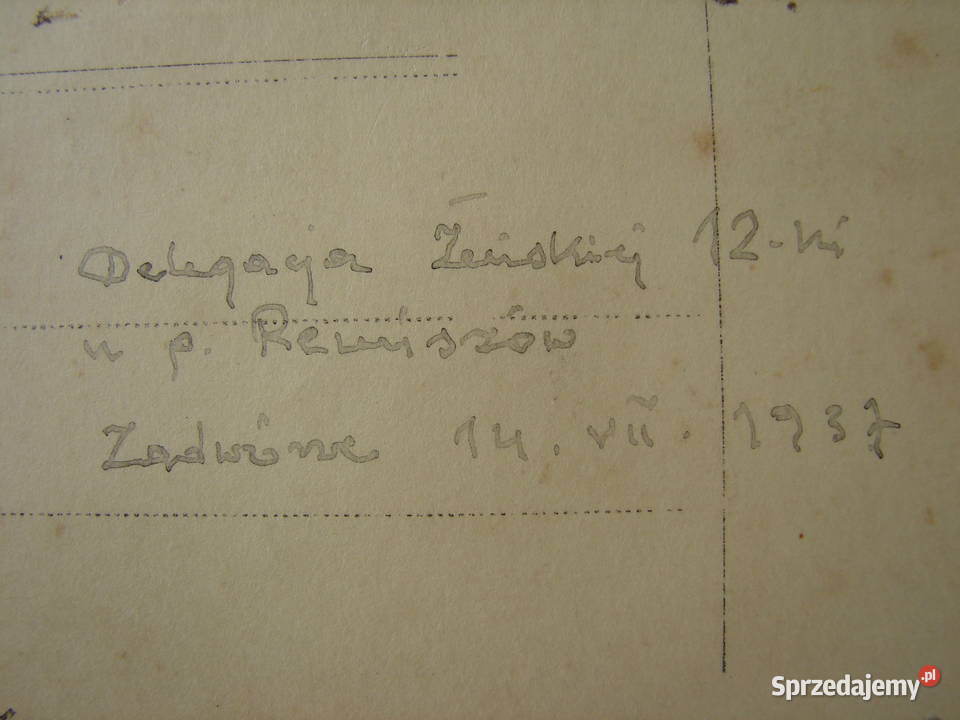 Delegacja Żeńskiej 12-ki
u p. Remiszów
Zadwórze 14. VII. 1937
Sprzedajemy.pl